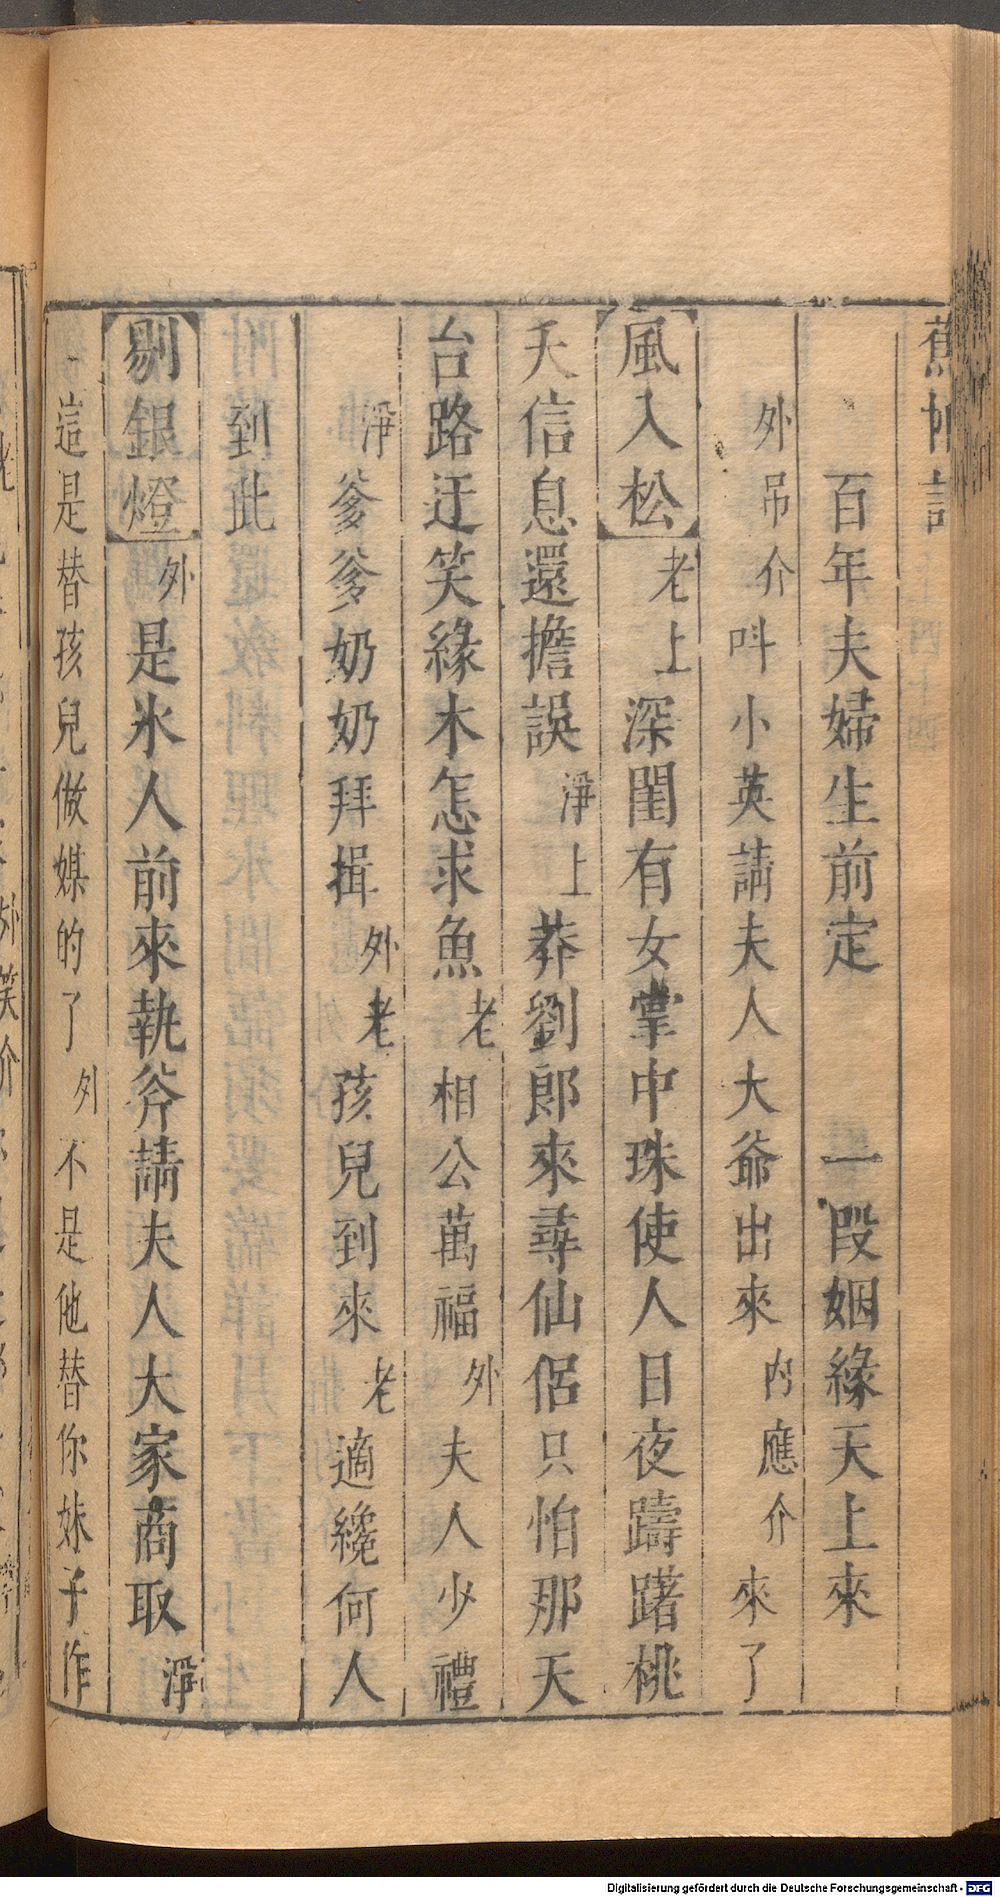 蕉帕記
百年夫婦生前定　一段姻緣天上來
外吊介叫小英請夫人大爺出來內應介來了
風入松老上深閨有女掌中珠使人日夜躊躇桃
夭信息還擔誤淨上莽劉郎來尋仙侶只怕那天
台路迂笑緣木怎求魚老相公萬福外夫人少禮
淨爹爹奶奶拜揖外老孩兒到來老適纔何人
到此
剔銀燈外是氷人前來執斧請夫人大家商取淨
這是替孩兒做媒的了外不是他替你妹子作
Digitalisierung gefördert durch die Deutsche Forschungsgemeinschaft - DFG